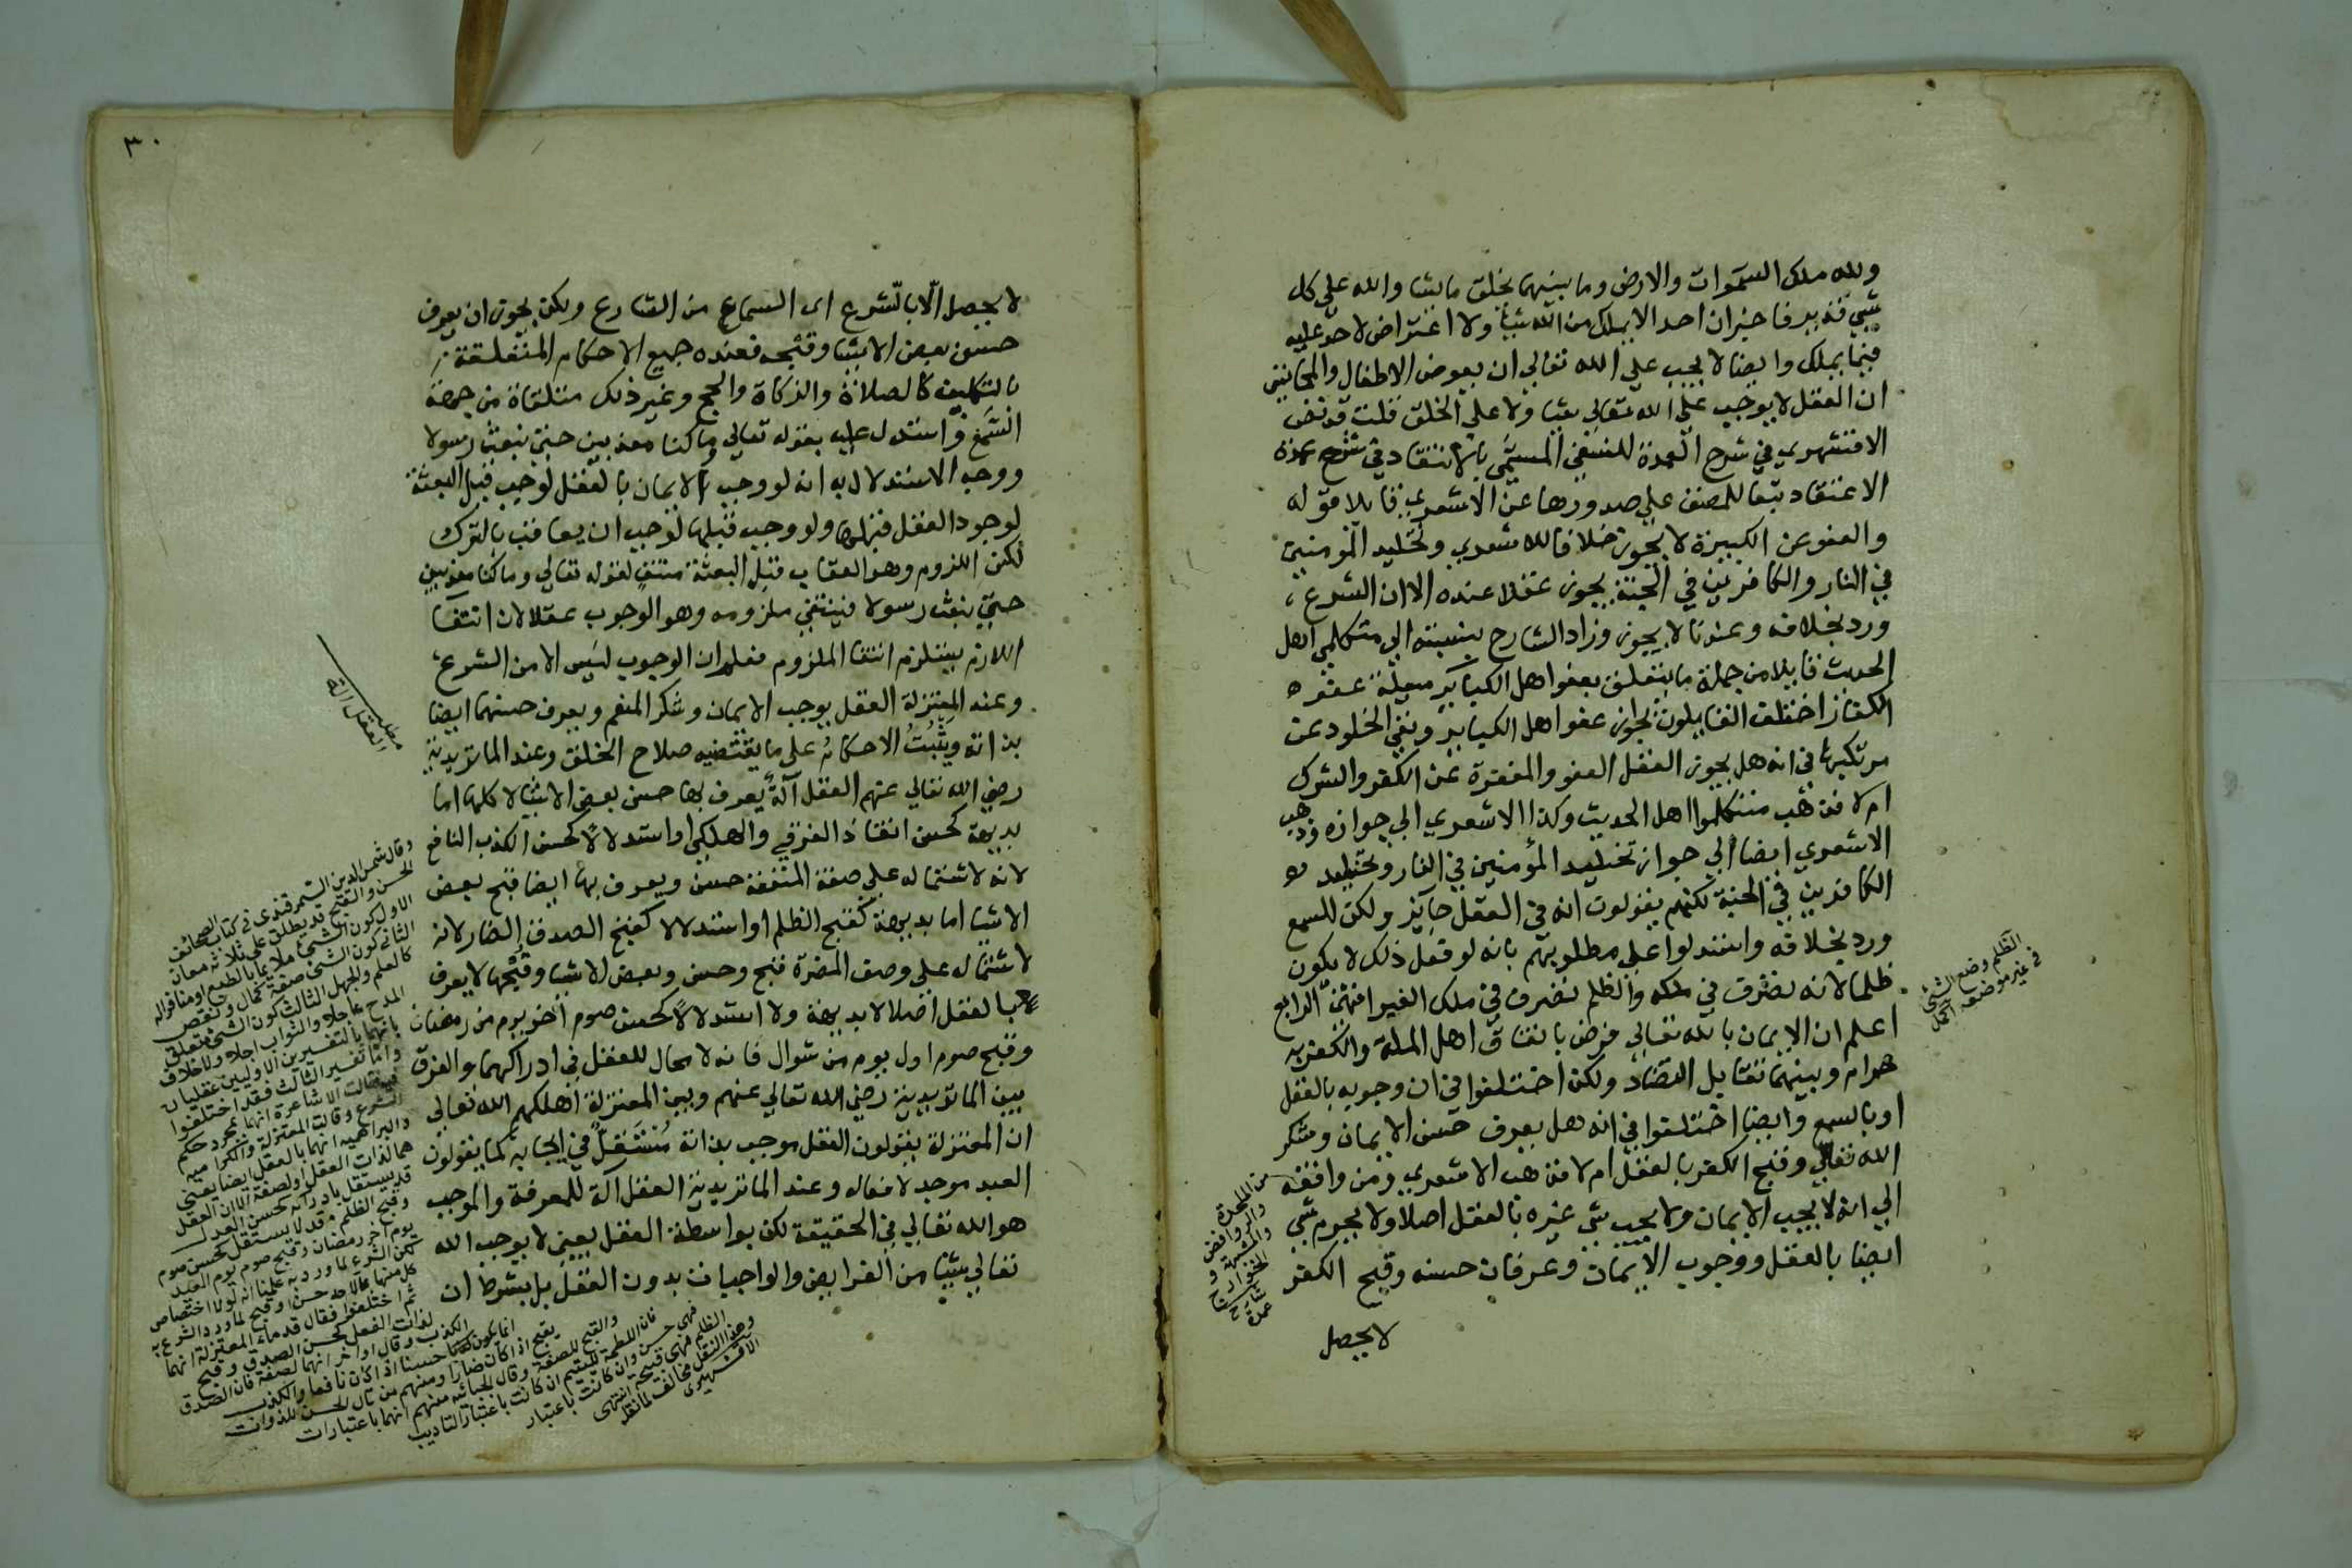 ولله ملك السموات والارض وما بينهما يخلق ما يشا والله على كل
شي قدير فاخبران احد الايملك من الله شيا ولا اعتراض لاحد عليه
فيما يملك وايضا لا يجب على الله تعالي ان يعوض الاطفال والمجانين
ان العقل لا يوجب على الله تعالي شيا ولا على الخلق قلت قد نص
الاقشهري في شرح العمدة للنسفي المسمى بالانتقاد في شرح عمدة
الاعتقاد تبعا للمصنف على صدورها عن الاشعري قايلا قوله
والعفو عن الكبيرة لا يجوز خلافا للاشعري وتخليد المومنين
في النار والكافرين في الجنة يجوز عقلا عنده الا ان الشرع
ورد بخلافه وعندنا لا يجوز وزاد الشارح بنسبته الي متكلمي اهل
الحديث قايلا من جملة ما يتعلق بعفو اهل الكباير مسيلة عفو
الكفار اختلف القايلون بجواز عفو اهل الكباير ونفي الخلود عن
مرتكبها في انه هل يجوز العقل العفو والمغفرة عن الكفر والشرك
ام لا فذهب متكلموا اهل الحديث وكذا الاشعري الي جوازه وذهب
الاشعري ايضا الي جواز تخليد المؤمنين في النار وتخليد
الكافرين في الجنة لكنهم يقولون انه في العقل جايز ولكن السمع
ورد بخلافه واستدلوا على مطلوبهم بانه لو فعل ذلك لا يكون
ظلما لانه تصرف في ملكه والظلم تصرف في ملك الغير انتهى الرابع
اعلم ان الايمان بالله تعالي فرض باتفاق اهل الملة والكفر به
حرام وبينهما تقابل التضاد ولكن اختلفوا في ان وجوبه بالعقل
اوبالسمع وايضا اختلفوا في انه هل يعرف حسن الايمان وشكر
الله تعالي وقبح الكفر بالعقل ام لا فذهب الاشعري ومن وافقه
الي انه لا يجب الايمان ولا يجب شي غيره بالعقل اصلا ولا يحرم شي
ايضا بالعقل ووجوب الايمان وعرفان حسنه وقبح الكفر
لا يحصل
الظلم وضع الشي
في غير موضعه اكمل
من الملحدة
والروافض
والمشبهة و
الخوارج
شارح
عمدة
٣٠
لا يحصل الا بالشرع اى السماع من الشارع ولكن يجوز ان يعرف
حسن بعض الاشيا وقبحه فعنده جميع الاحكام المتعلقة
بالتكليف كالصلاة والزكاة والحج وغير ذلك متلقاة من جهة
السمع واستدل عليه بقوله تعالي وما كنا معذبين حتى نبعث رسولا
ووجه الاستدلال به انه لو وجب الايمان بالعقل لوجب قبل البعثة
لوجود العقل قبلها ولو وجب قبلها لوجب ان يعاقب بالترك
لكن اللزوم وهو العقاب قبل البعثة منتف لقوله تعالي وما كنا معذبين
حتى نبعث رسولا فينتفي ملزومه وهو الوجوب عقلا لان انتفا
اللازم يستلزم انتفا الملزوم فعلم ان الوجوب ليس الا من الشرع
وعند المعتزلة العقل يوجب الايمان وشكر المنعم ويعرف حسنهما ايضا
بذاته ويثبت الاحكام على ما يقتضيه صلاح الخلق وعند الماتريدية
رضي الله تعالي عنهم العقل آلة يعرف بها حسن بعض الاشيا لا كلها اما
بديهة كحسن انقاذ الغرقى والهلكى او استدلالا كحسن الكذب النافع
لانه لاشتماله على صفة المنفعة حسن ويعرف بها ايضا قبح بعض
الاشيا اما بديهة كقبح الظلم او استدلالا كقبح الصدق الضار لانه
لاشتماله على وصف المضرة قبح وحسن وبعض الاشيا وقبحها لا يعرف
بالعقل اصلا لا بديهة ولا استدلالا كحسن صوم آخر يوم من رمضان
وقبح صوم اول يوم من شوال فانه لا مجال للعقل في ادراكهما والفرق
بين الماتريدية رضي الله تعالي عنهم وبين المعتزلة اهلكهم الله تعالى
ان المعتزلة يقولون العقل موجب بذاته مستقل في ايجابه كما يقولون
العبد موجد لافعاله وعند الماتريدية العقل آلة للمعرفة والموجب
هو الله تعالي في الحقيقة لكن بواسطة العقل يعني لا يوجب الله
تعالي شيا من الفرايض والواجبات بدون العقل بل بشرط ان
مطلب
العقل آلة
وقال شمس الدين السمرقندى في كتاب الصحائف
الحسن والقبح قد يطلق على ثلاثة معان
الاول كون الشي ملايما بالطبع او منافرا له
الثاني كون الشي صفة كمال ونقص
كالعلم والجهل الثالث كون الشي متعلق
المدح عاجلا والثواب اجلا ولا خلاف
بانهما بالتفسيرين الاولين عقليان
واما تفسير الثالث فقد اختلفوا
فيه فقالت الاشاعرة انهما بمجرد حكم
الشرع وقالت المعتزلة والكرامية
والبراهمة انهما بالعقل ايضا يعني
هما لذات العقل او لصفة الا ان العقل
قد يستقل بادراكه كحسن العدل
وقبح الظلم وقد لا يستقل كحسن صوم
يوم آخر رمضان وقبح صوم يوم العيد
لكن الشرع لما ورد به علمنا انه لولا اختصاص
كل منهما بما لاجله حسن او قبح لما ورد الشرع به
ثم اختلفوا فقال قدماء المعتزلة انهما
لذات الفعل كحسن الصدق وقبح
الكذب وقال اواخرا انهما لصفة فان الصدق
انما يكون حسنا اذا كان نافعا والكذب
يقبح اذا كان ضارا ومنهم من قال الحسن للذوات
والقبح للصفة وقال الجبائيه منهم انهما باعتبارات
فان اللطمة لليتيم ان كانت باعتبار التاديب
فهي حسن وان كانت باعتبار
الظلم فهي قبيحة انتهى
وهذا النقل مخالف لما نقله
الاقشهري